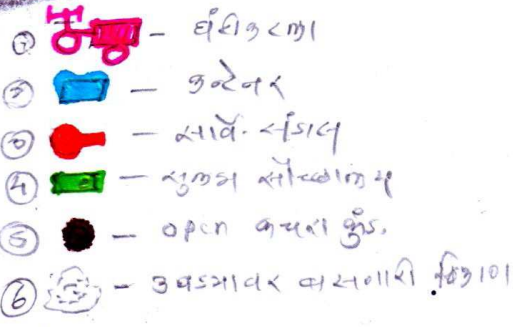 ① - घंटीकरला
② - कन्टेनर
③ - सार्व. संडास
④ - सुलभ शौच्छालय
⑤ - open कचरा कुंड.
⑥ - उघड्यावर बसनारी ठिकाण